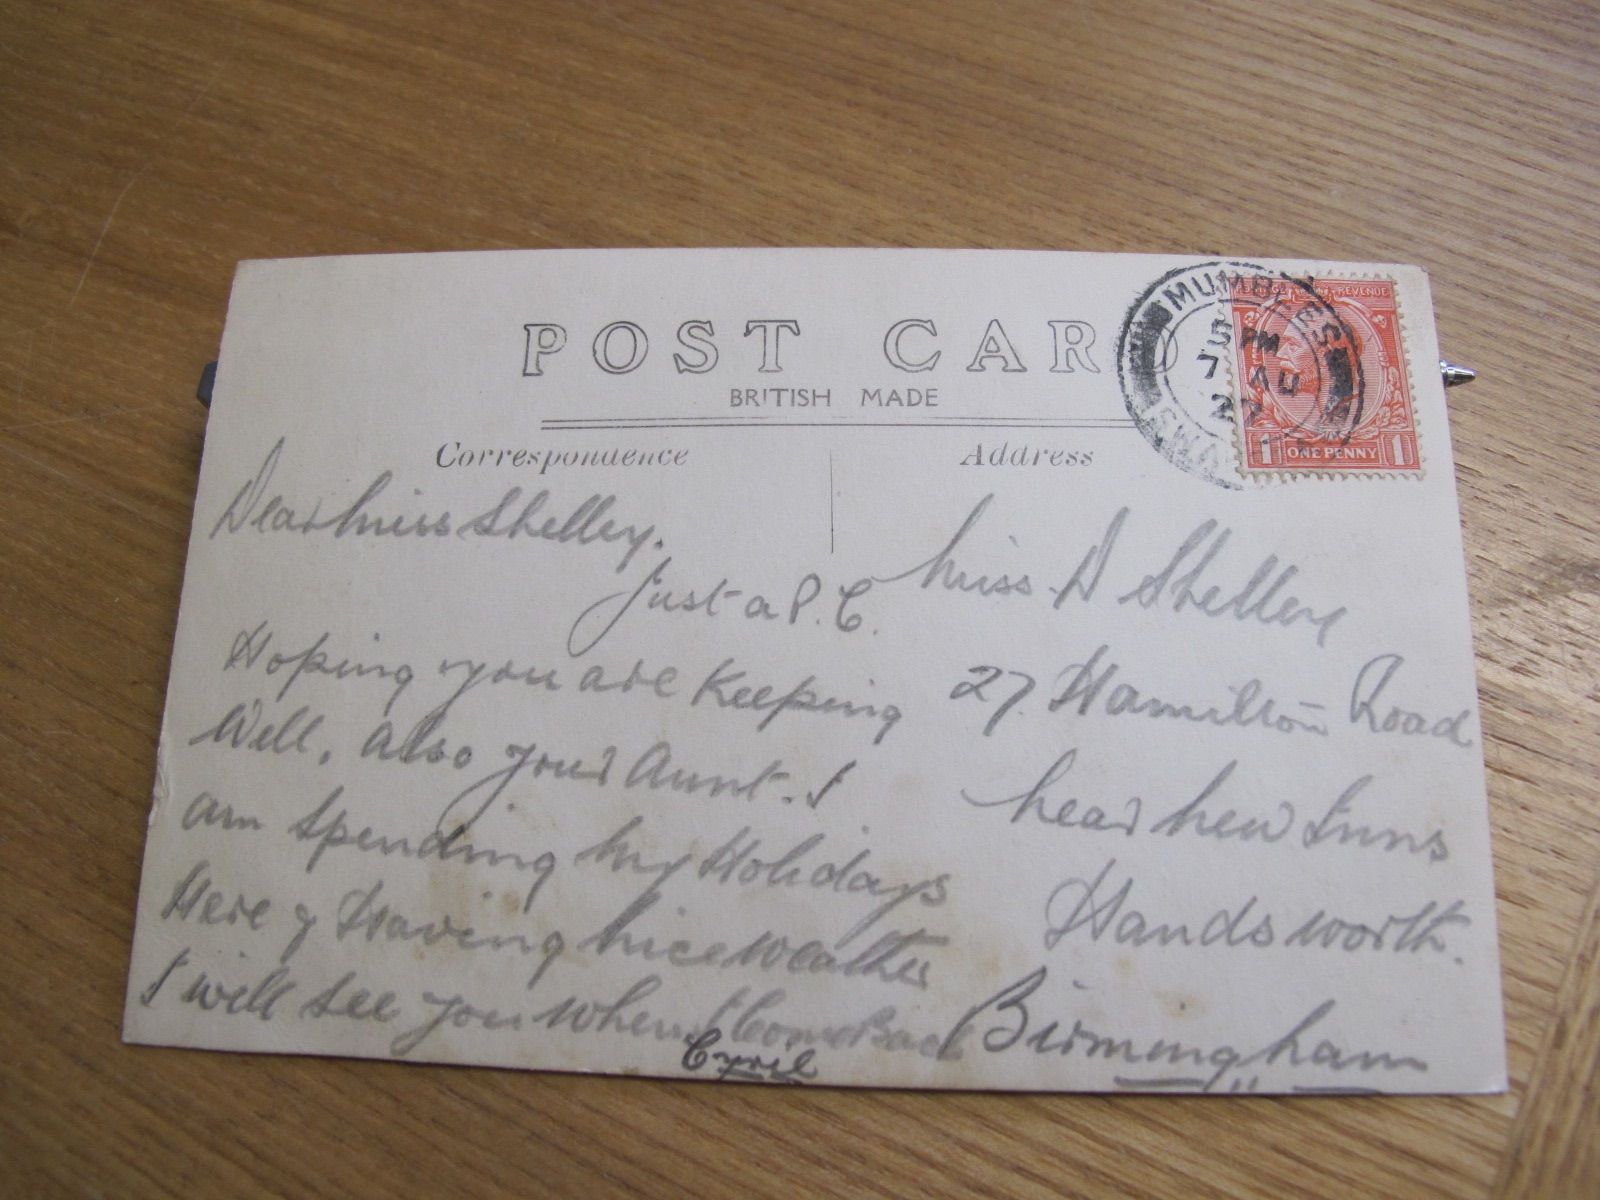 POST CARD
BRITISH MADE
Correspondence
Address
MUMBLES
5 PM
7 AU
27
SWA
POSTAGE REVENUE
1 ONE PENNY 1
Dear Miss Shelley.
Just a P.C.
Hoping you are Keeping
Well, also your Aunt. I
am Spending my Holidays
Here & Having nice weather
I will see you when I Come Back
Cyril
Miss D Shelley
27. Hamilton Road
near New Inns
Handsworth.
Birmingham